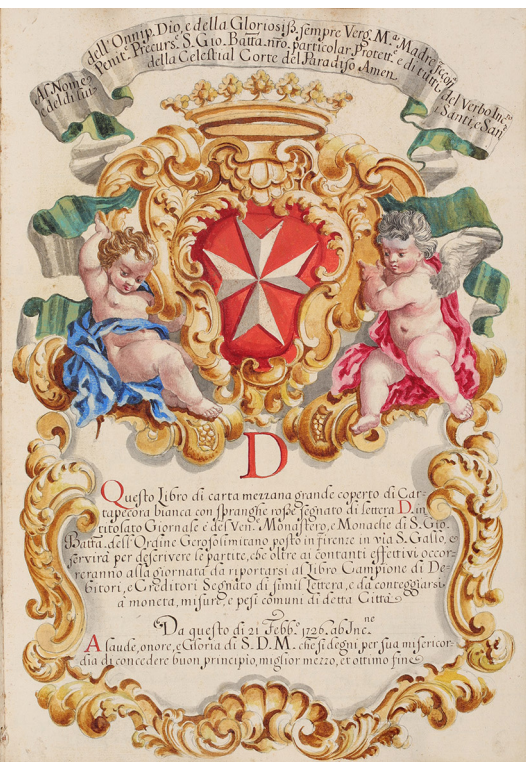 Al Nome
dell'Onnip. Dio, e della Gloriosiſs. sempre Verg. M.ª Madre
del Verbo Inc.to
e del di lui
Penit. e Precurs. S. Gio. Batta. nr̃o particolar Protett.e e di tutti
i Santi, e San.
della Celestial Corte del Paradiso Amen.
D
Questo Libro di carta mezzana grande coperto di Car-
tapecora bianca con spranghe roſse segnato di lettera D. in
titolato Giornale è del Ven.e Monastero, e Monache di S. Gio.
Batta. dell'Ordine Gerosolimitano posto in Firenze in via S. Gallo, e
servirà per descrivere le partite, che oltre ai contanti effettivi occor-
reranno alla giornata da riportarsi al Libro Campione di De-
bitori, e Creditori Segnato di simil lettera, e da conteggiarsi
a moneta, misure, e pesi comuni di detta Città
Da questo dì 21 Febb.º 1726. ab Inc.ne
A laude, onore, e Gloria di S. D. M. che si degni per sua misericor-
dia di concedere buon principio, miglior mezzo, et ottimo fine